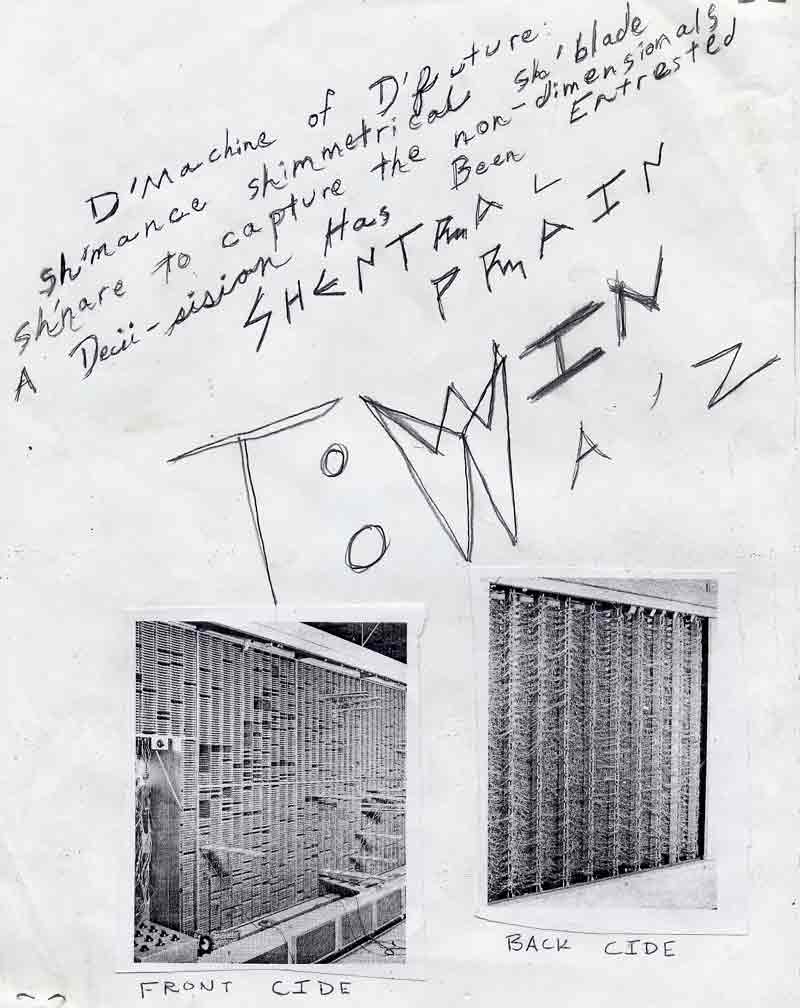 D'Machine of D'future:
sh'mance shimmetrical sh'blade
sh'hare to capture the non-dimensionals
A Decii-sision Has Been Entrested
SHENTRAL
PRAIN
TO:WIN
A'Z
FRONT CIDE
BACK CIDE